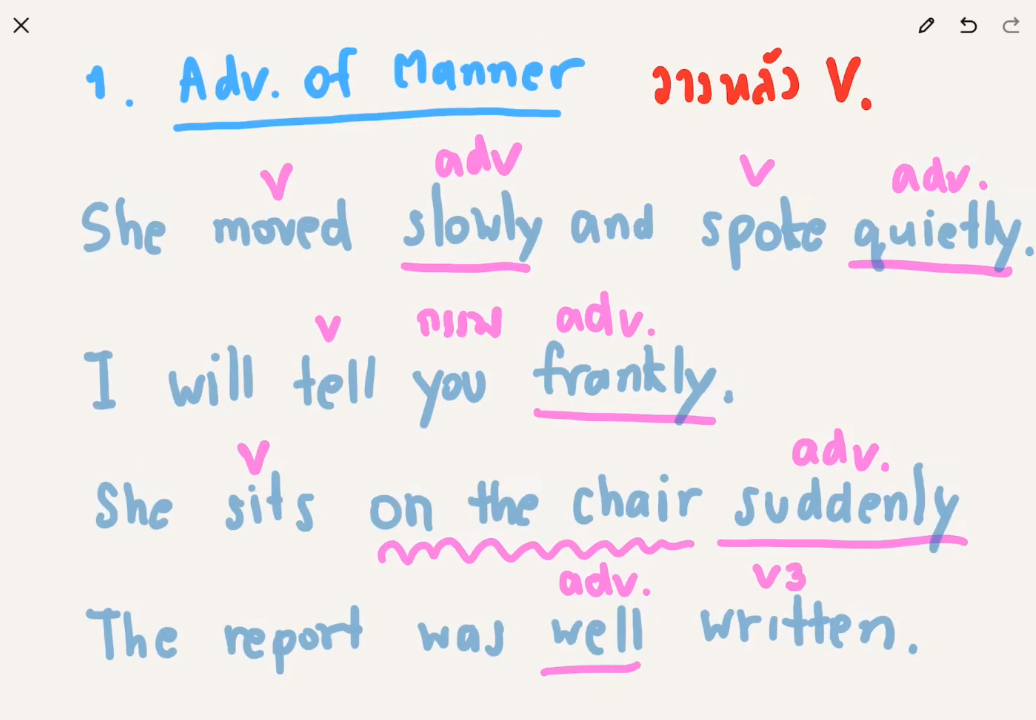 1. Adv. of Manner วางหลัง V.
v adv v adv.
She moved slowly and spoke quietly.
v กรรม adv.
I will tell you frankly.
v adv.
She sits on the chair suddenly
adv. v3
The report was well written.